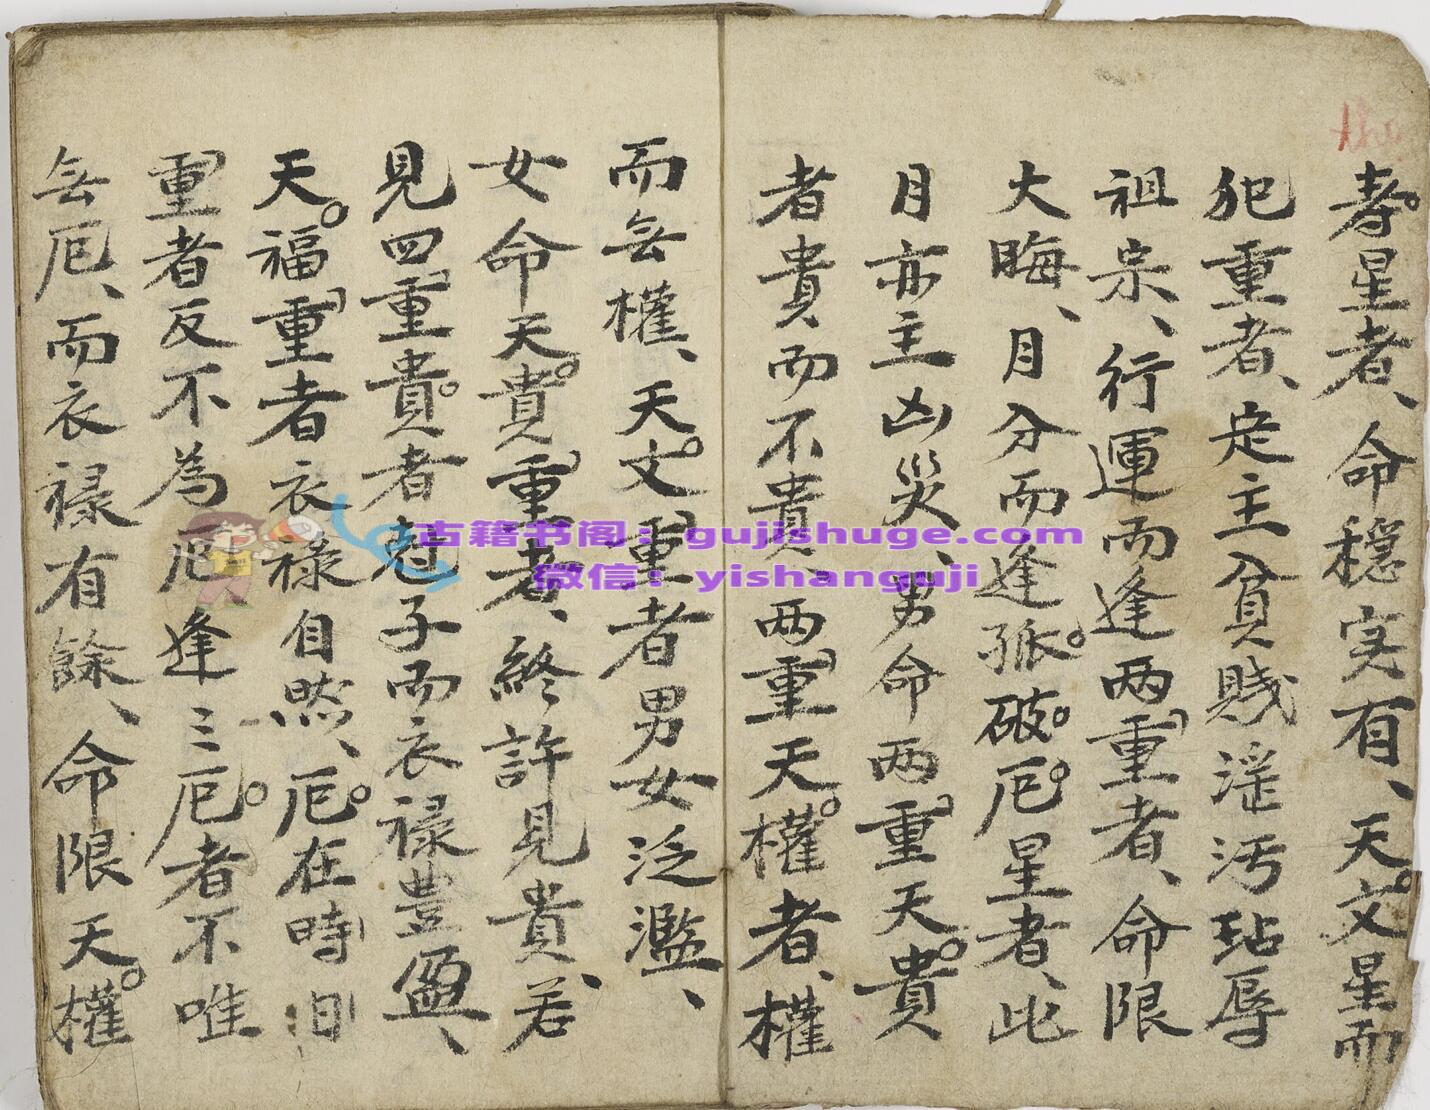 寿星者、命穏实有、天文星而
犯重者、定主貧賤滛汚玷辱
祖宗、行運而逢两重者、命限
大晦、月分而逢孤破厄星者、此
月亦主凶災、男命两重天貴
者貴而不貴、两重天權者、權
而無權、天文重者男女泛濫、
女命天貴重者、終許見貴、若
見四重貴者尅子而衣禄豊盈、
天福重者衣禄自然、厄在時日
重者反不為厄逢三厄者不唯
無厄、而衣禄有餘、命限天權
古籍书阁：gujishuge.com
微信：yishanguji